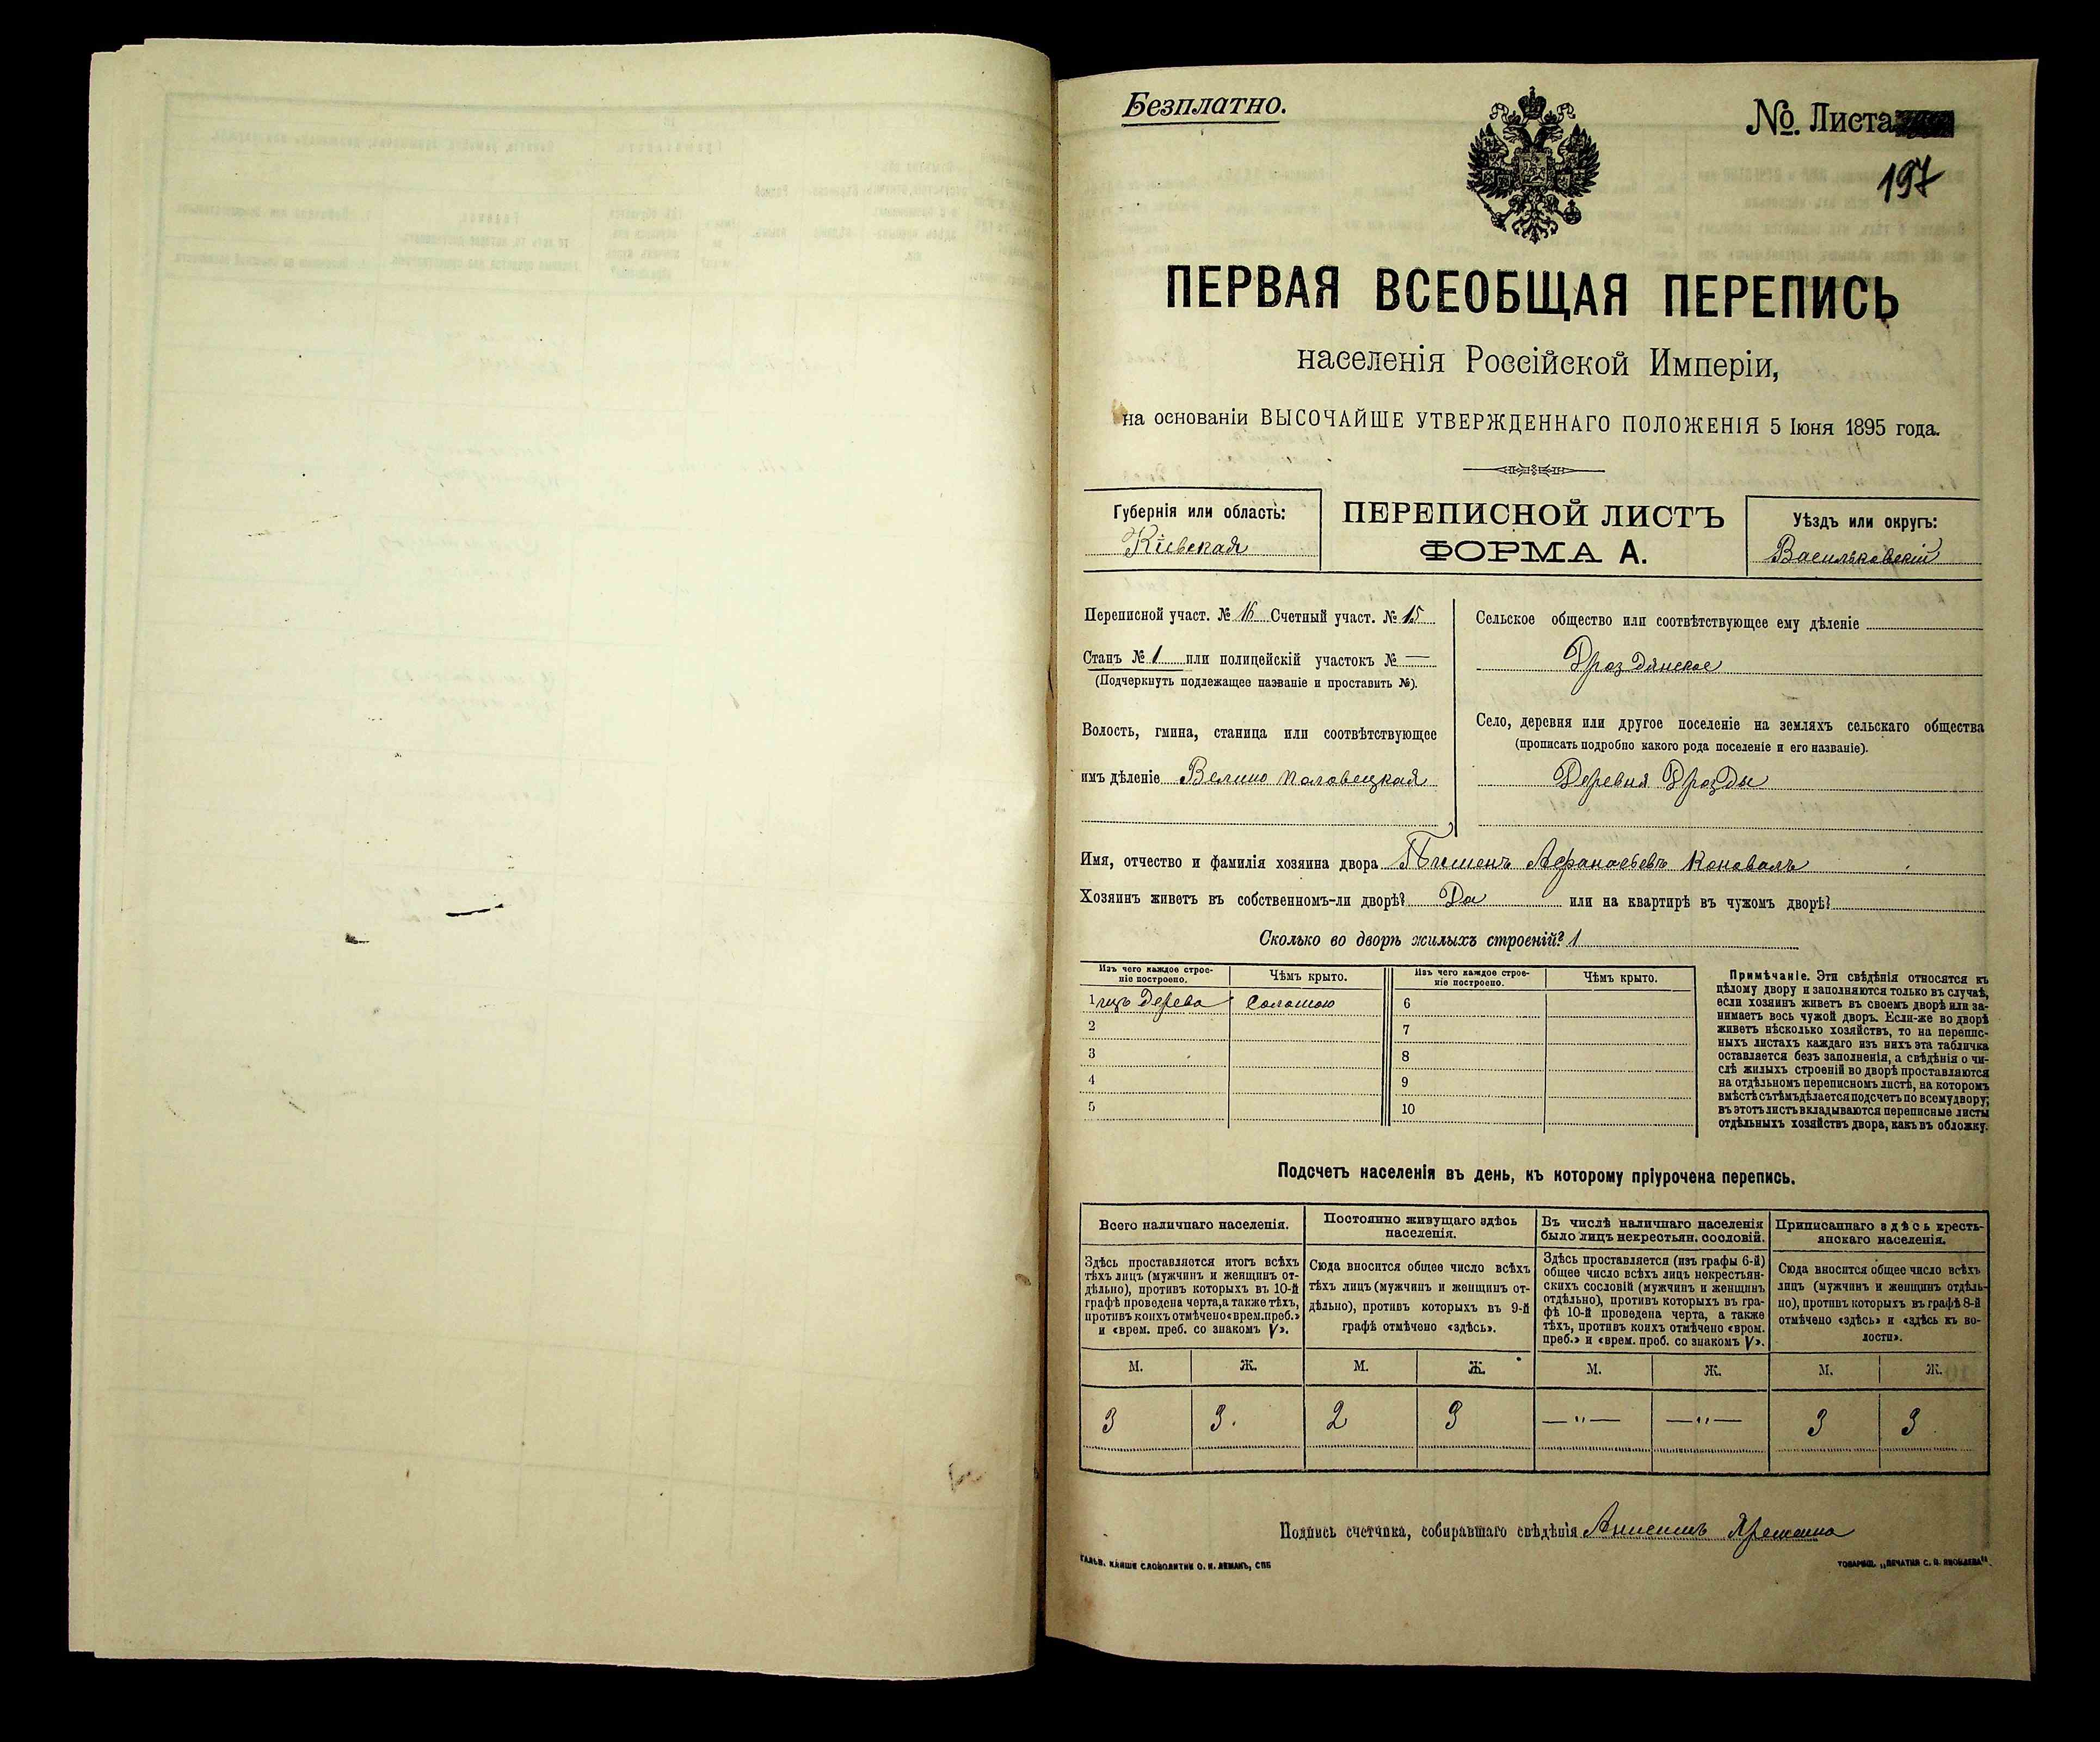 Безплатно.
№. Листа
197
ПЕРВАЯ ВСЕОБЩАЯ ПЕРЕПИСЬ
населенія Россійской Имперіи,
на основаніи ВЫСОЧАЙШЕ УТВЕРЖДЕННАГО ПОЛОЖЕНІЯ 5 Іюня 1895 года.
Губернія или область:
Кіевская
ПЕРЕПИСНОЙ ЛИСТЪ
ФОРМА А.
Уѣздъ или округъ:
Васильковскій
Переписной участ. № 16 Счетный участ. № 15
Станъ № 1 или полицейскій участокъ № —
(Подчеркнуть подлежащее названіе и проставить №).
Волость, гмина, станица или соотвѣтствующее
имъ дѣленіе Велико Половецкая
Сельское общество или соотвѣтствующее ему дѣленіе
Дроздянское
Село, деревня или другое поселеніе на земляхъ сельскаго общества
(прописать подробно какого рода поселеніе и его названіе).
Деревня Дрозды
Имя, отчество и фамилія хозяина двора Пименъ Афанасьевъ Коновалъ
Хозяинъ живетъ въ собственномъ-ли дворѣ? Да или на квартирѣ въ чужомъ дворѣ?
Сколько во дворѣ жилыхъ строеній? 1
Изъ чего каждое строе-
ніе построено.
Чѣмъ крыто.
Изъ чего каждое строе-
ніе построено.
Чѣмъ крыто.
1 изъ Дерева Соломою 6
2 7
3 8
4 9
5 10
Примѣчаніе. Эти свѣдѣнія относятся къ
цѣлому двору и заполняются только въ случаѣ,
если хозяинъ живетъ въ своемъ дворѣ или за-
нимаетъ весь чужой дворъ. Если-же во дворѣ
живетъ нѣсколько хозяйствъ, то на перепис-
ныхъ листахъ каждаго изъ нихъ эта табличка
оставляется безъ заполненія, а свѣдѣнія о чи-
слѣ жилыхъ строеній во дворѣ проставляются
на отдѣльномъ переписномъ листѣ, на которомъ
вмѣстѣ съ тѣмъ дѣлается подсчетъ по всему двору;
въ этотъ листъ вкладываются переписные листы
отдѣльныхъ хозяйствъ двора, какъ въ обложку.
Подсчетъ населенія въ день, къ которому пріурочена перепись.
Всего наличнаго населенія.
Здѣсь проставляется итогъ всѣхъ
тѣхъ лицъ (мужчинъ и женщинъ от-
дѣльно), противъ которыхъ въ 10-й
графѣ проведена черта, а также тѣхъ,
противъ коихъ отмѣчено «врем. преб.»
и «врем. преб. со знакомъ V».
Постоянно живущаго здѣсь
населенія.
Сюда вносится общее число всѣхъ
тѣхъ лицъ (мужчинъ и женщинъ от-
дѣльно), противъ которыхъ въ 9-й
графѣ отмѣчено «здѣсь».
Въ числѣ наличнаго населенія
было лицъ некрестьян. сословій.
Здѣсь проставляется (изъ графы 6-й)
общее число всѣхъ лицъ некрестьян-
скихъ сословій (мужчинъ и женщинъ
отдѣльно), противъ которыхъ въ гра-
фѣ 10-й проведена черта, а также
тѣхъ, противъ коихъ отмѣчено «врем.
преб.» и «врем. преб. со знакомъ V».
Приписаннаго здѣсь кресть-
янскаго населенія.
Сюда вносится общее число всѣхъ
лицъ (мужчинъ и женщинъ отдѣль-
но), противъ которыхъ въ графѣ 8-й
отмѣчено «здѣсь» и «здѣсь къ во-
лости».
М. Ж. М. Ж. М. Ж. М. Ж.
3 3. 2 3 —"— —"— 3 3
Подпись счетчика, собиравшаго свѣдѣнія Анисимъ
ГАЛЬВ. КЛИШЕ СЛОВОЛИТНИ О. И. ЛЕМАНЪ, СПБ
ТОВАРИЩ. „ПЕЧАТНЯ С. П. ЯКОВЛЕВА"